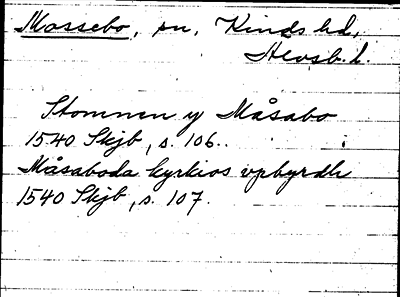 Mossebo, sn, Kinds hd,
Älvsb. l.
Stommen y Måsabo
1540 Skjb, s. 106.
Måsaboda kyrkios vpbyrdh
1540 Skjb, s. 107.